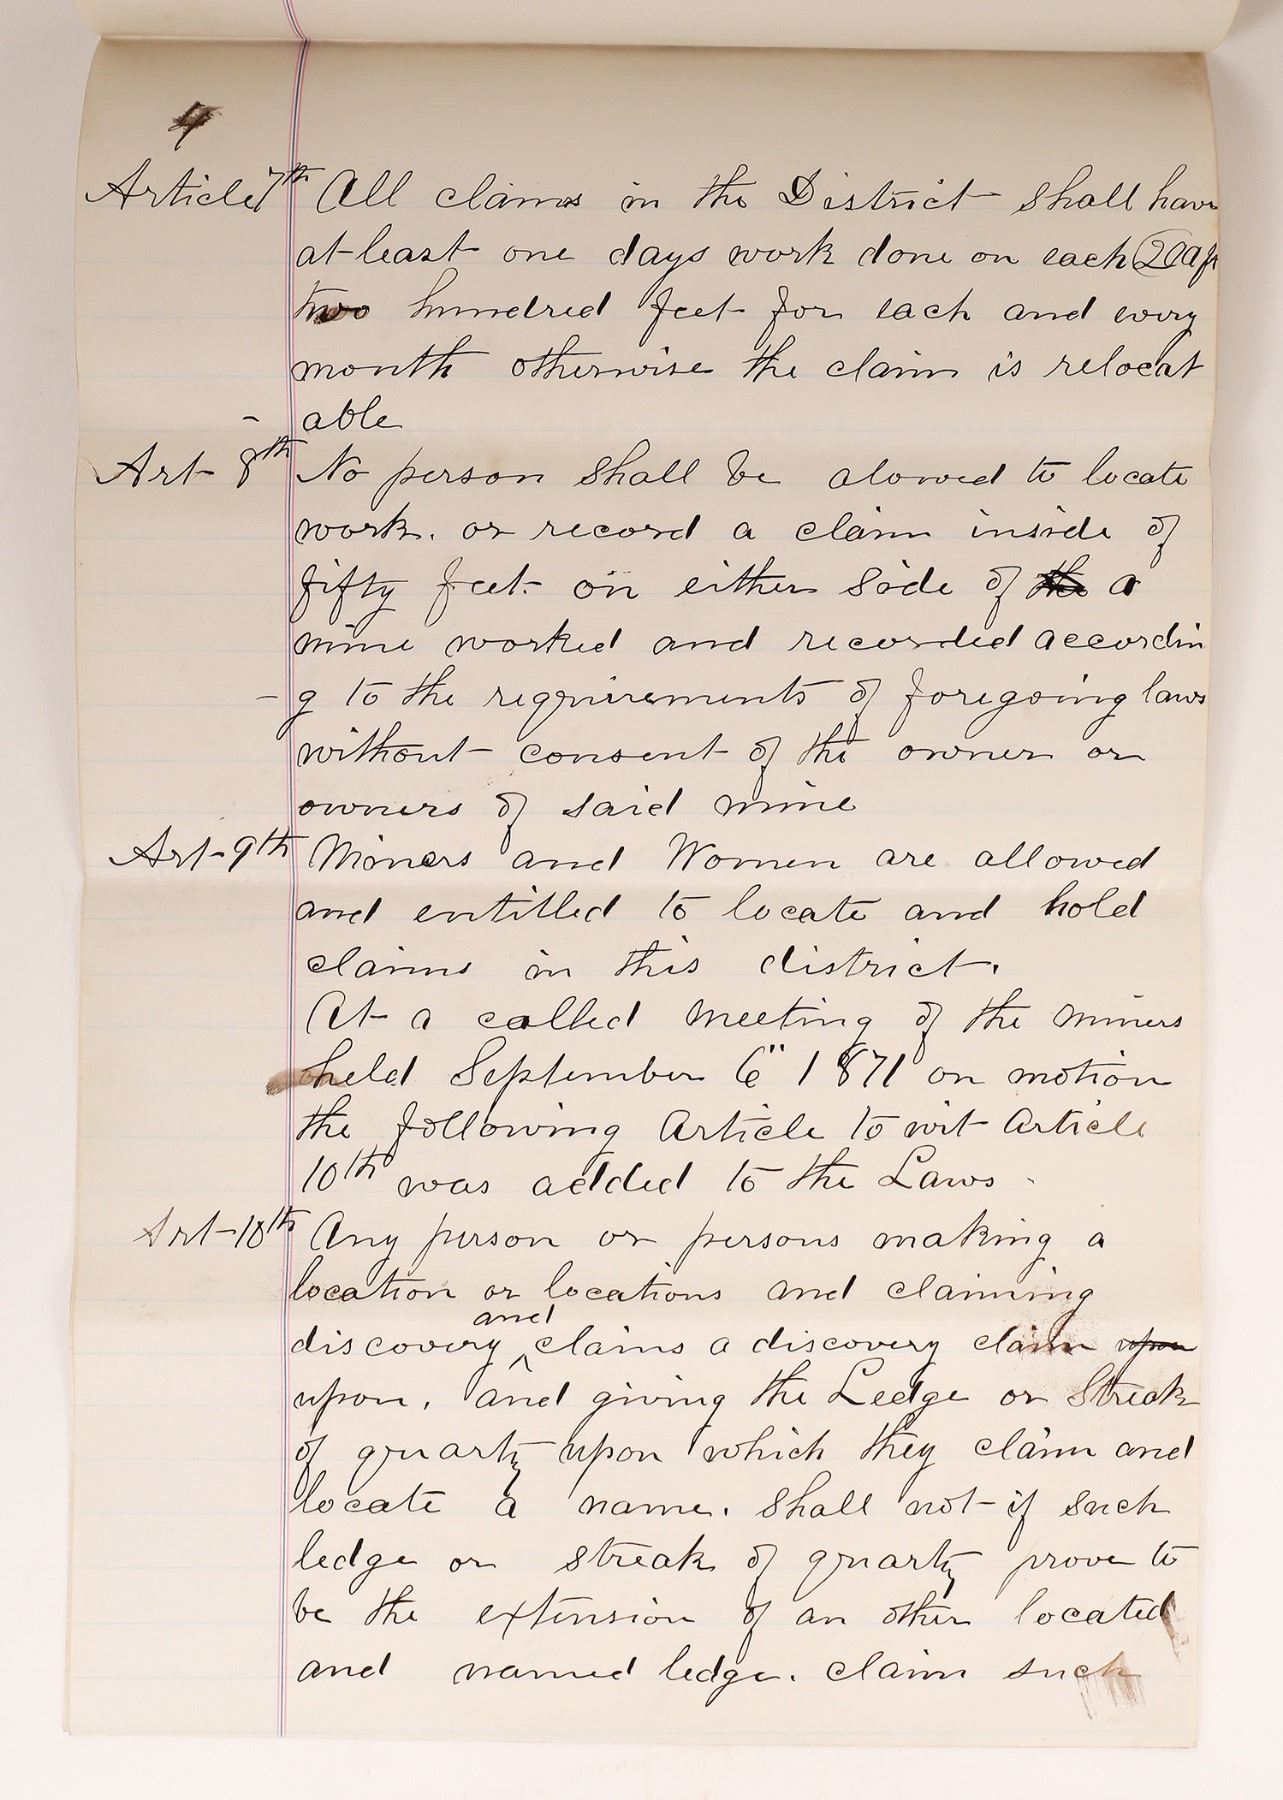 4
Article 7th All claims in the District shall have
at least one days work done on each 200 ft
two hundred feet for each and every
month otherwise the claim is relocat
able
Art- 8th No person shall be alowed to locate
work. or record a claim inside of
fifty feet on either side of the a
mine worked and recorded accordin
- g to the requirements of foregoing laws
without consent of the owner or
owners of said mine
Art- 9th Miners and Women are allowed
and entitled to locate and hold
claims in this district.
At a called meeting of the miners
held September 6" 1871 on motion
the following Article to wit Article
10th was added to the Laws -
Art- 10th Any person or persons making a
location or locations and claiming
discovery and claims a discovery claim upon
upon, and giving the Ledge or Streak
of quartz upon which they claim and
locate a name. shall not if such
ledge or streak of quartz prove to
be the extension of an other located
and named ledge. claim such